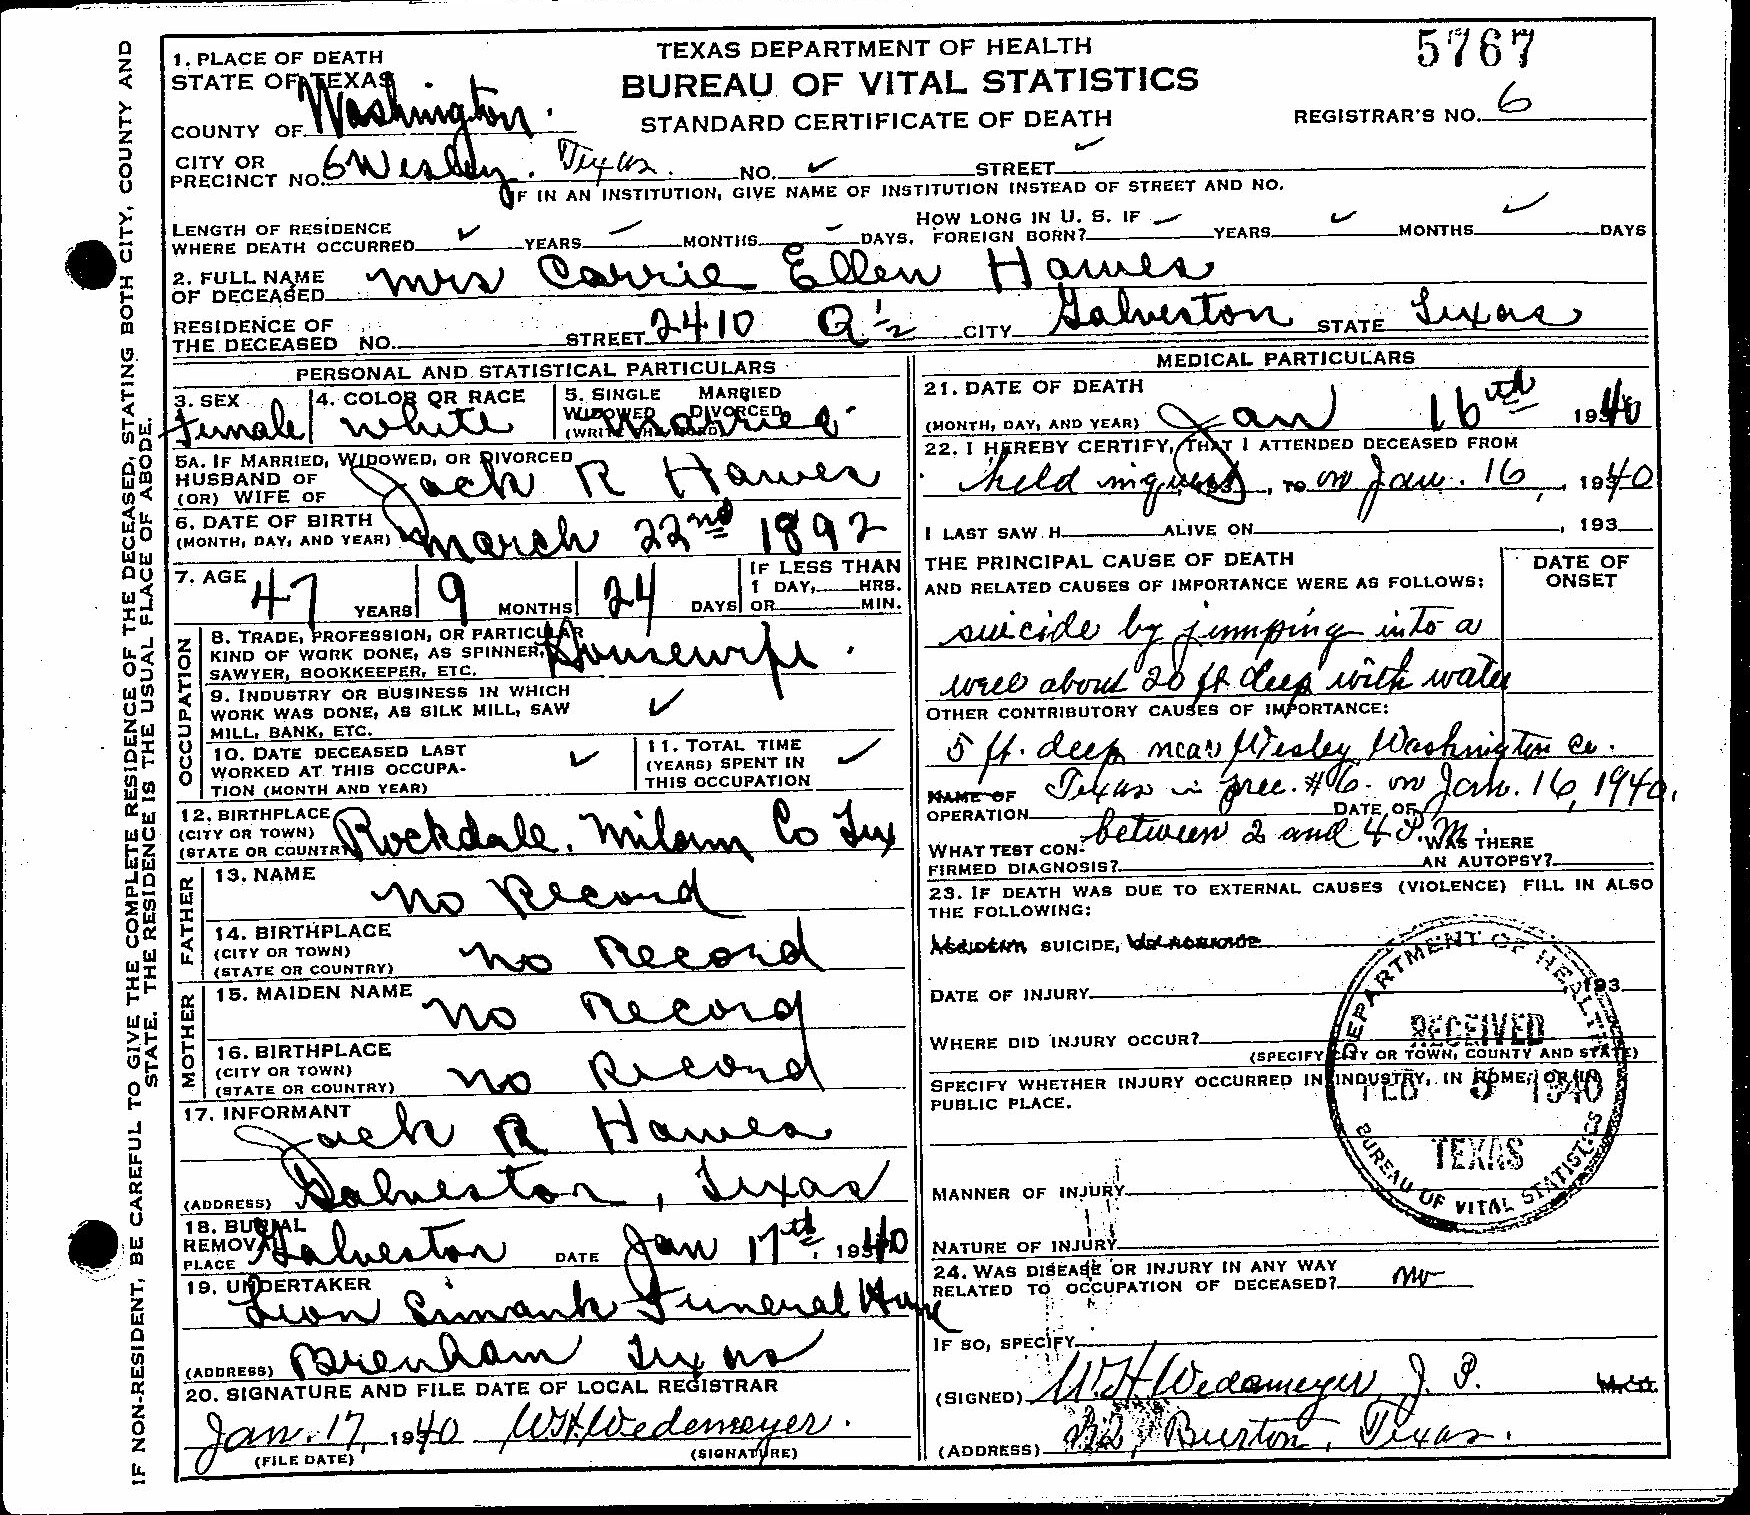 TEXAS DEPARTMENT OF HEALTH
BUREAU OF VITAL STATISTICS
STANDARD CERTIFICATE OF DEATH
5767
REGISTRAR'S NO. 6
1. PLACE OF DEATH
STATE OF TEXAS
COUNTY OF Washington.
CITY OR PRECINCT NO. 6 Wesley. Texas. NO. ✓ STREET ✓
IF IN AN INSTITUTION, GIVE NAME OF INSTITUTION INSTEAD OF STREET AND NO.
LENGTH OF RESIDENCE WHERE DEATH OCCURRED ✓ YEARS MONTHS DAYS. HOW LONG IN U. S. IF FOREIGN BORN? YEARS ✓ MONTHS ✓ DAYS
2. FULL NAME OF DECEASED Mrs Carrie Ellen Hawes
RESIDENCE OF THE DECEASED NO. STREET 2410 Q ½ CITY Galveston STATE Texas
PERSONAL AND STATISTICAL PARTICULARS
3. SEX Female
4. COLOR OR RACE White
5. SINGLE MARRIED WIDOWED DIVORCED (WRITE THE WORD) Married
5A. IF MARRIED, WIDOWED, OR DIVORCED
HUSBAND OF
(OR) WIFE OF Jack R Hawes
6. DATE OF BIRTH
(MONTH, DAY, AND YEAR) March 22nd 1892
7. AGE 47 YEARS 9 MONTHS 24 DAYS IF LESS THAN 1 DAY, HRS. OR MIN.
OCCUPATION
8. TRADE, PROFESSION, OR PARTICULAR
KIND OF WORK DONE, AS SPINNER, Housewife.
SAWYER, BOOKKEEPER, ETC.
9. INDUSTRY OR BUSINESS IN WHICH
WORK WAS DONE, AS SILK MILL, SAW ✓
MILL, BANK, ETC.
10. DATE DECEASED LAST
WORKED AT THIS OCCUPA- ✓
TION (MONTH AND YEAR)
11. TOTAL TIME
(YEARS) SPENT IN ✓
THIS OCCUPATION
12. BIRTHPLACE
(CITY OR TOWN)
(STATE OR COUNTRY) Rockdale, Milam Co Tex
FATHER
13. NAME No Record
14. BIRTHPLACE
(CITY OR TOWN)
(STATE OR COUNTRY) No Record
MOTHER
15. MAIDEN NAME No Record
16. BIRTHPLACE
(CITY OR TOWN)
(STATE OR COUNTRY) No Record
17. INFORMANT
Jack R Hawes
(ADDRESS) Galveston, Texas
18. BURIAL
REMOVAL
PLACE Galveston DATE Jan 17th, 1940
19. UNDERTAKER
Leon Simank Funeral Home
(ADDRESS) Brenham Texas
20. SIGNATURE AND FILE DATE OF LOCAL REGISTRAR
Jan. 17, 1940 W.H. Wedemeyer.
(FILE DATE) (SIGNATURE)
MEDICAL PARTICULARS
21. DATE OF DEATH
(MONTH, DAY, AND YEAR) Jan 16th 1940
22. I HEREBY CERTIFY, THAT I ATTENDED DECEASED FROM
held inquest, TO on Jan. 16, 1940
I LAST SAW H ALIVE ON , 193
THE PRINCIPAL CAUSE OF DEATH
AND RELATED CAUSES OF IMPORTANCE WERE AS FOLLOWS:
DATE OF ONSET
suicide by jumping into a
well about 20 ft deep with water
OTHER CONTRIBUTORY CAUSES OF IMPORTANCE:
5 ft. deep near Wesley Washington Co.
Texas in Prec. #6. on Jan. 16, 1940,
NAME OF OPERATION DATE OF
between 2 and 4 P.M.
WHAT TEST CONFIRMED DIAGNOSIS? WAS THERE AN AUTOPSY?
23. IF DEATH WAS DUE TO EXTERNAL CAUSES (VIOLENCE) FILL IN ALSO
THE FOLLOWING:
ACCIDENT, SUICIDE, OR HOMICIDE
DATE OF INJURY , 193
WHERE DID INJURY OCCUR?
(SPECIFY CITY OR TOWN, COUNTY AND STATE)
SPECIFY WHETHER INJURY OCCURRED IN INDUSTRY, IN HOME, OR IN
PUBLIC PLACE.
DEPARTMENT OF HEALTH
RECEIVED
FEB 5 1940
TEXAS
BUREAU OF VITAL STATISTICS
MANNER OF INJURY
NATURE OF INJURY
24. WAS DISEASE OR INJURY IN ANY WAY
RELATED TO OCCUPATION OF DECEASED? no
IF SO, SPECIFY
(SIGNED) W.H. Wedemeyer, J. P. M.D.
(ADDRESS) R2, Burton, Texas.
IF NON-RESIDENT, BE CAREFUL TO GIVE THE COMPLETE RESIDENCE OF THE DECEASED, STATING BOTH CITY, COUNTY AND
STATE. THE RESIDENCE IS THE USUAL PLACE OF ABODE.